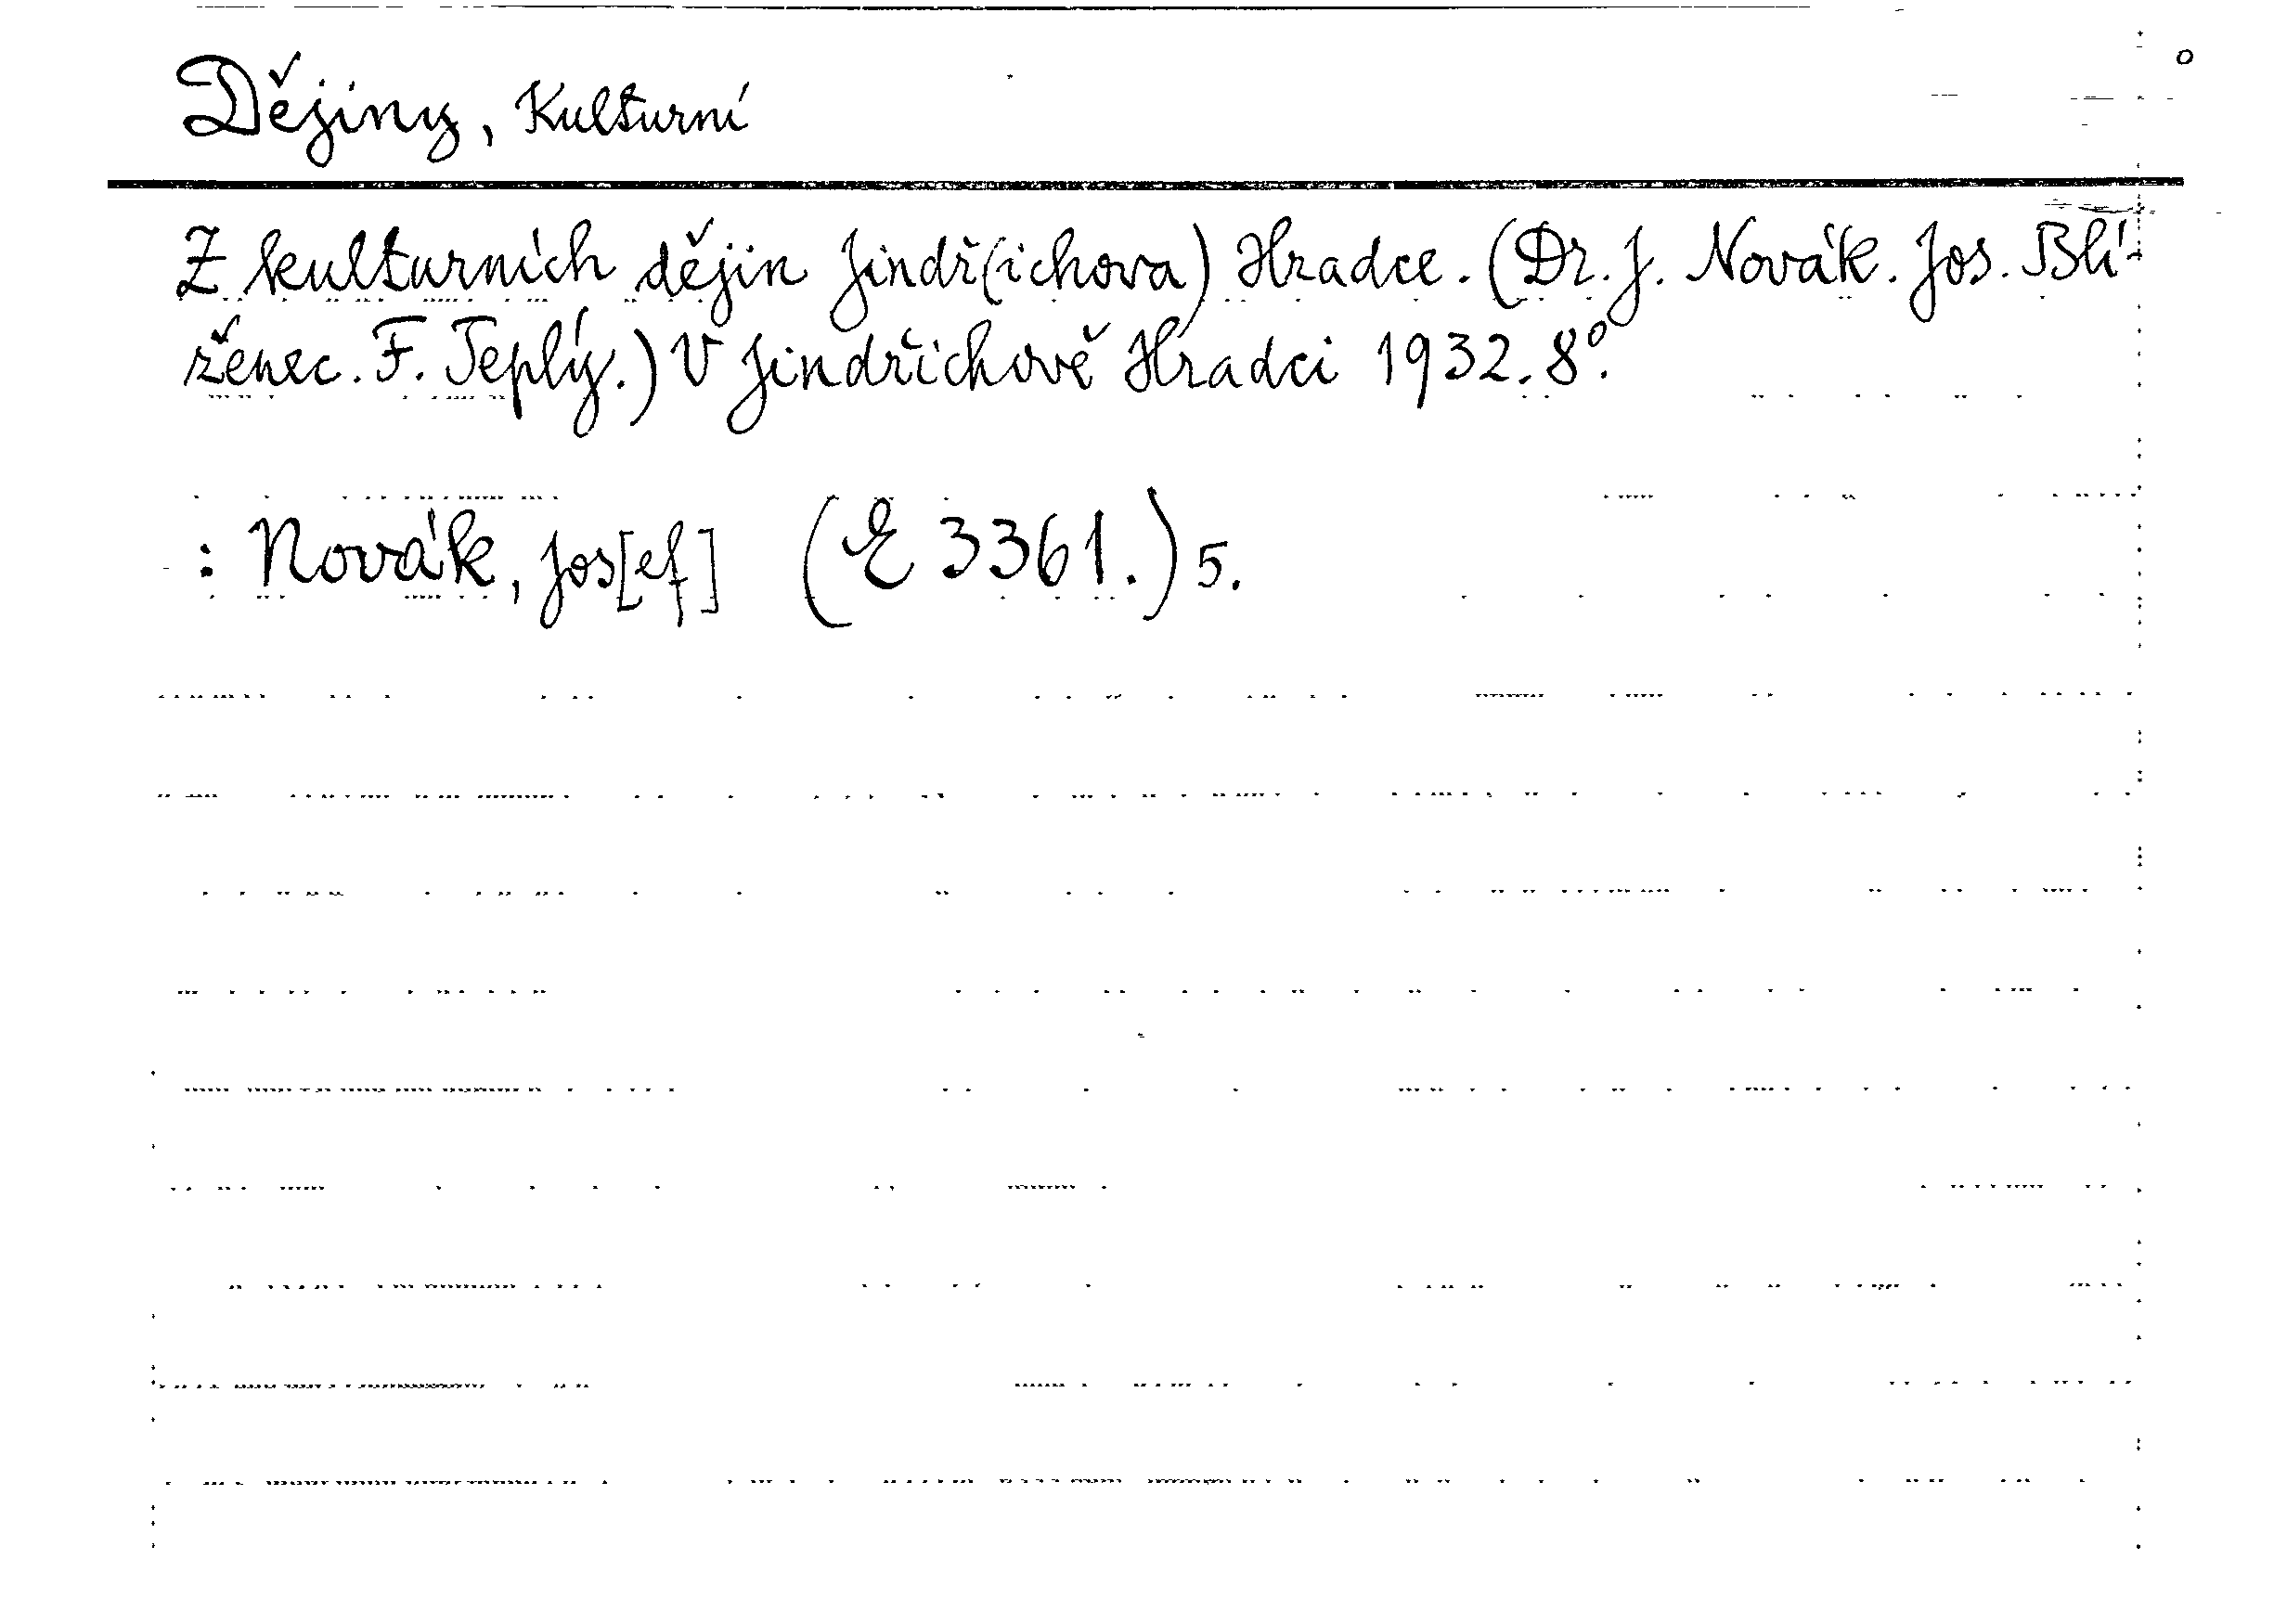 Dějiny, Kulturní
Z kulturních dějin Jindř(ichova) Hradce. (Dr. J. Novák. Jos. Blí-
ženec. F. Teplý.) V Jindřichově Hradci 1932. 8°.
: Novák, Jos[ef] (E 3361.) 5.